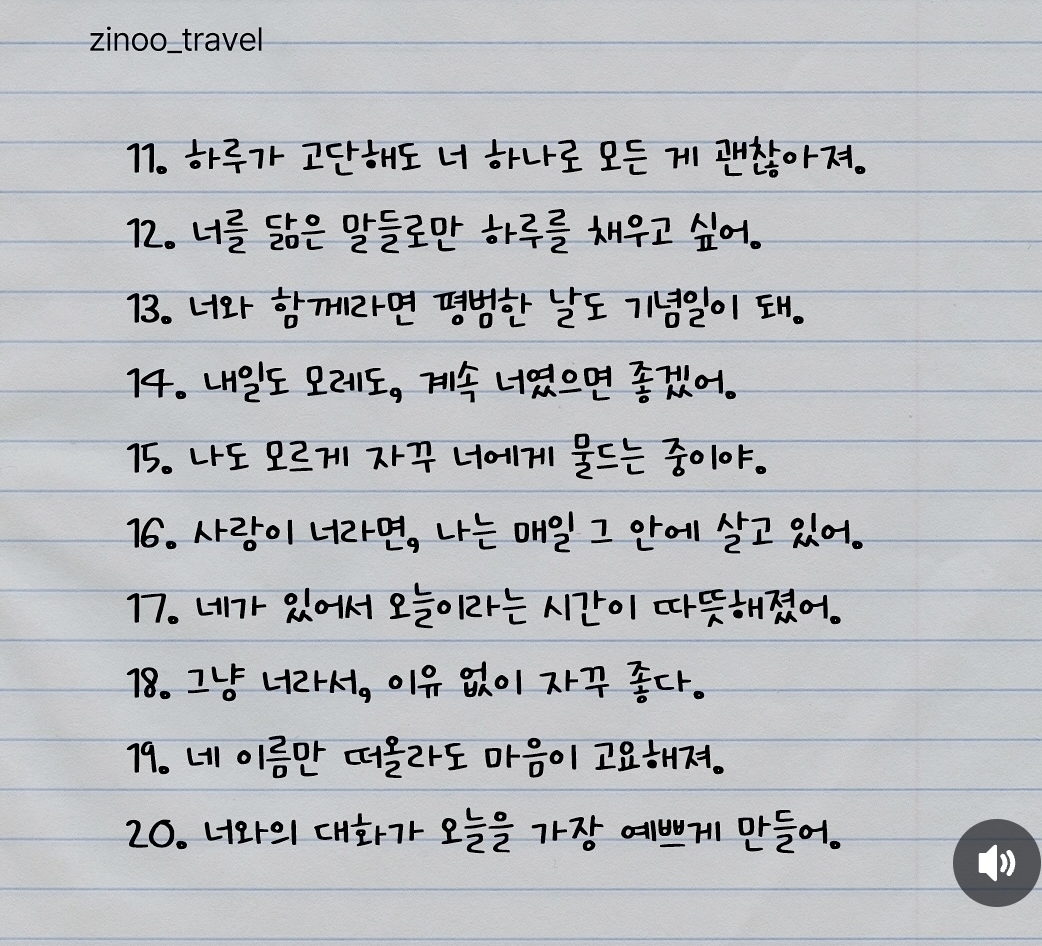 zinoo_travel
11. 하루가 고단해도 너 하나로 모든 게 괜찮아져.
12. 너를 닮은 말들로만 하루를 채우고 싶어.
13. 너와 함께라면 평범한 날도 기념일이 돼.
14. 내일도 모레도, 계속 너였으면 좋겠어.
15. 나도 모르게 자꾸 너에게 물드는 중이야.
16. 사랑이 너라면, 나는 매일 그 안에 살고 있어.
17. 네가 있어서 오늘이라는 시간이 따뜻해졌어.
18. 그냥 너라서, 이유 없이 자꾸 좋다.
19. 네 이름만 떠올라도 마음이 고요해져.
20. 너와의 대화가 오늘을 가장 예쁘게 만들어.